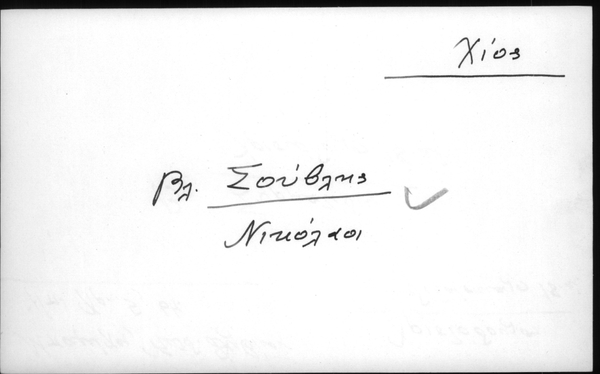 Χίος
Βλ. Σούβλης
Νικόλαοι